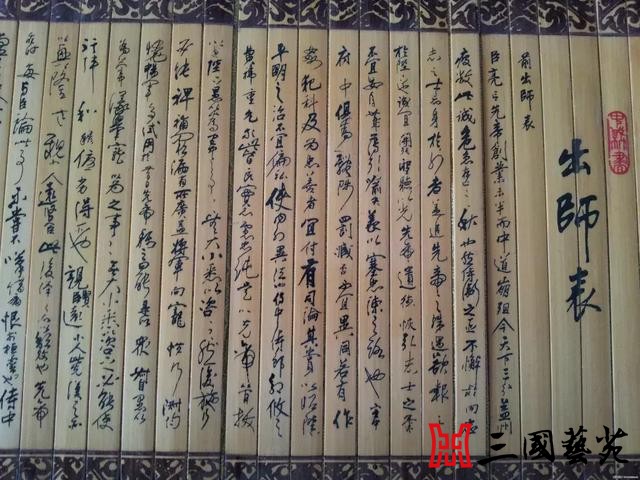 出師表
前出師表
臣亮言先帝創業未半而中道崩殂今天下三分益州
疲敝此誠危急存亡之秋也然侍衛之臣不懈於內忠
志之士忘身於外者蓋追先帝之殊遇欲報之
於陛下也誠宜開張聖聽以光先帝遺德恢弘志士之氣
不宜妄自菲薄引喻失義以塞忠諫之路也宮
府中俱為一體陟罰臧否不宜異同若有作
姦犯科及為忠善者宜付有司論其賞以昭陛
平明之治不宜偏私使內外異法也侍中侍郎郭攸之
費禕董允等皆良實志慮忠純是以先帝簡拔
以遺陛下愚以為宮中之事事無大小悉以咨之然後施行
必能裨補闕漏有所廣益將軍向寵性行淑均
曉暢軍事試用於昔日先帝稱之曰能是以眾議舉
為督愚以為營中之事事無大小悉以咨之必能使
行陣和睦優劣得所也親賢遠小人此先漢之所
以興隆也親小人遠賢臣此後漢之所以傾頹也先帝
在時每與臣論此事未嘗不嘆息痛恨於桓靈也侍中
三國藝苑